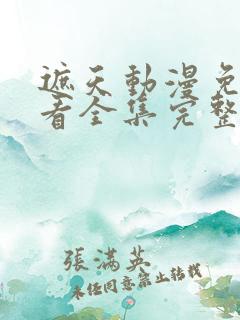 遮天動漫免
看全集完整
張滿英
未经同意禁止转载